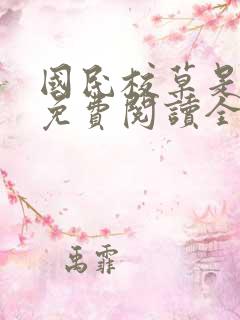 國民校草是
免費閱讀全
禹霏